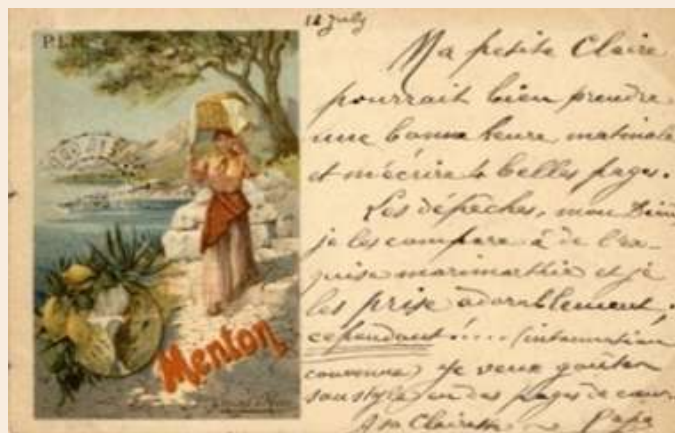 P.L.M.
Menton
12 July
Ma petite Claire
pourrait bien prendre
une bonne heure matinale
et m'écrire de belles pages.
Les dépêches, mon Dieu,
je les compare à de l'ex-
et je
les prise adorablement,
cependant!.... (intonation
je veux goûter
son style en des pages de cœur.
A sa Clairette Papa